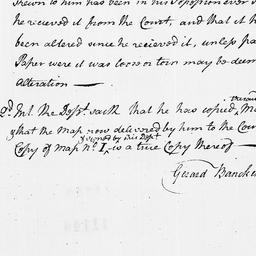 Shewn to him has been in his Possession ever
he recieved it from the Court, and that it h
been altered since he recieved it, unless pa
Paper were it was loose or torn may be deem
alteration —
2d. Mr. the Dept. saith that he has copied
that the Map now delivered by him to the Cou
signed by this Dept
Copy of Map No. 1 is a true Copy thereof —
Gerard Bancker